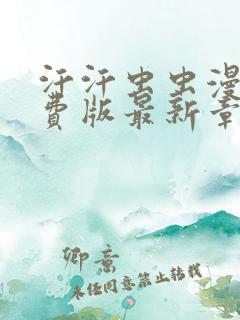 汗汗虫虫漫
费版最新章
卿意
未经同意禁止转载